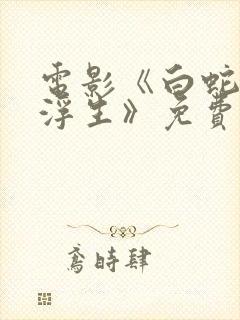 電影《白蛇
浮生》免費
鳶時肆